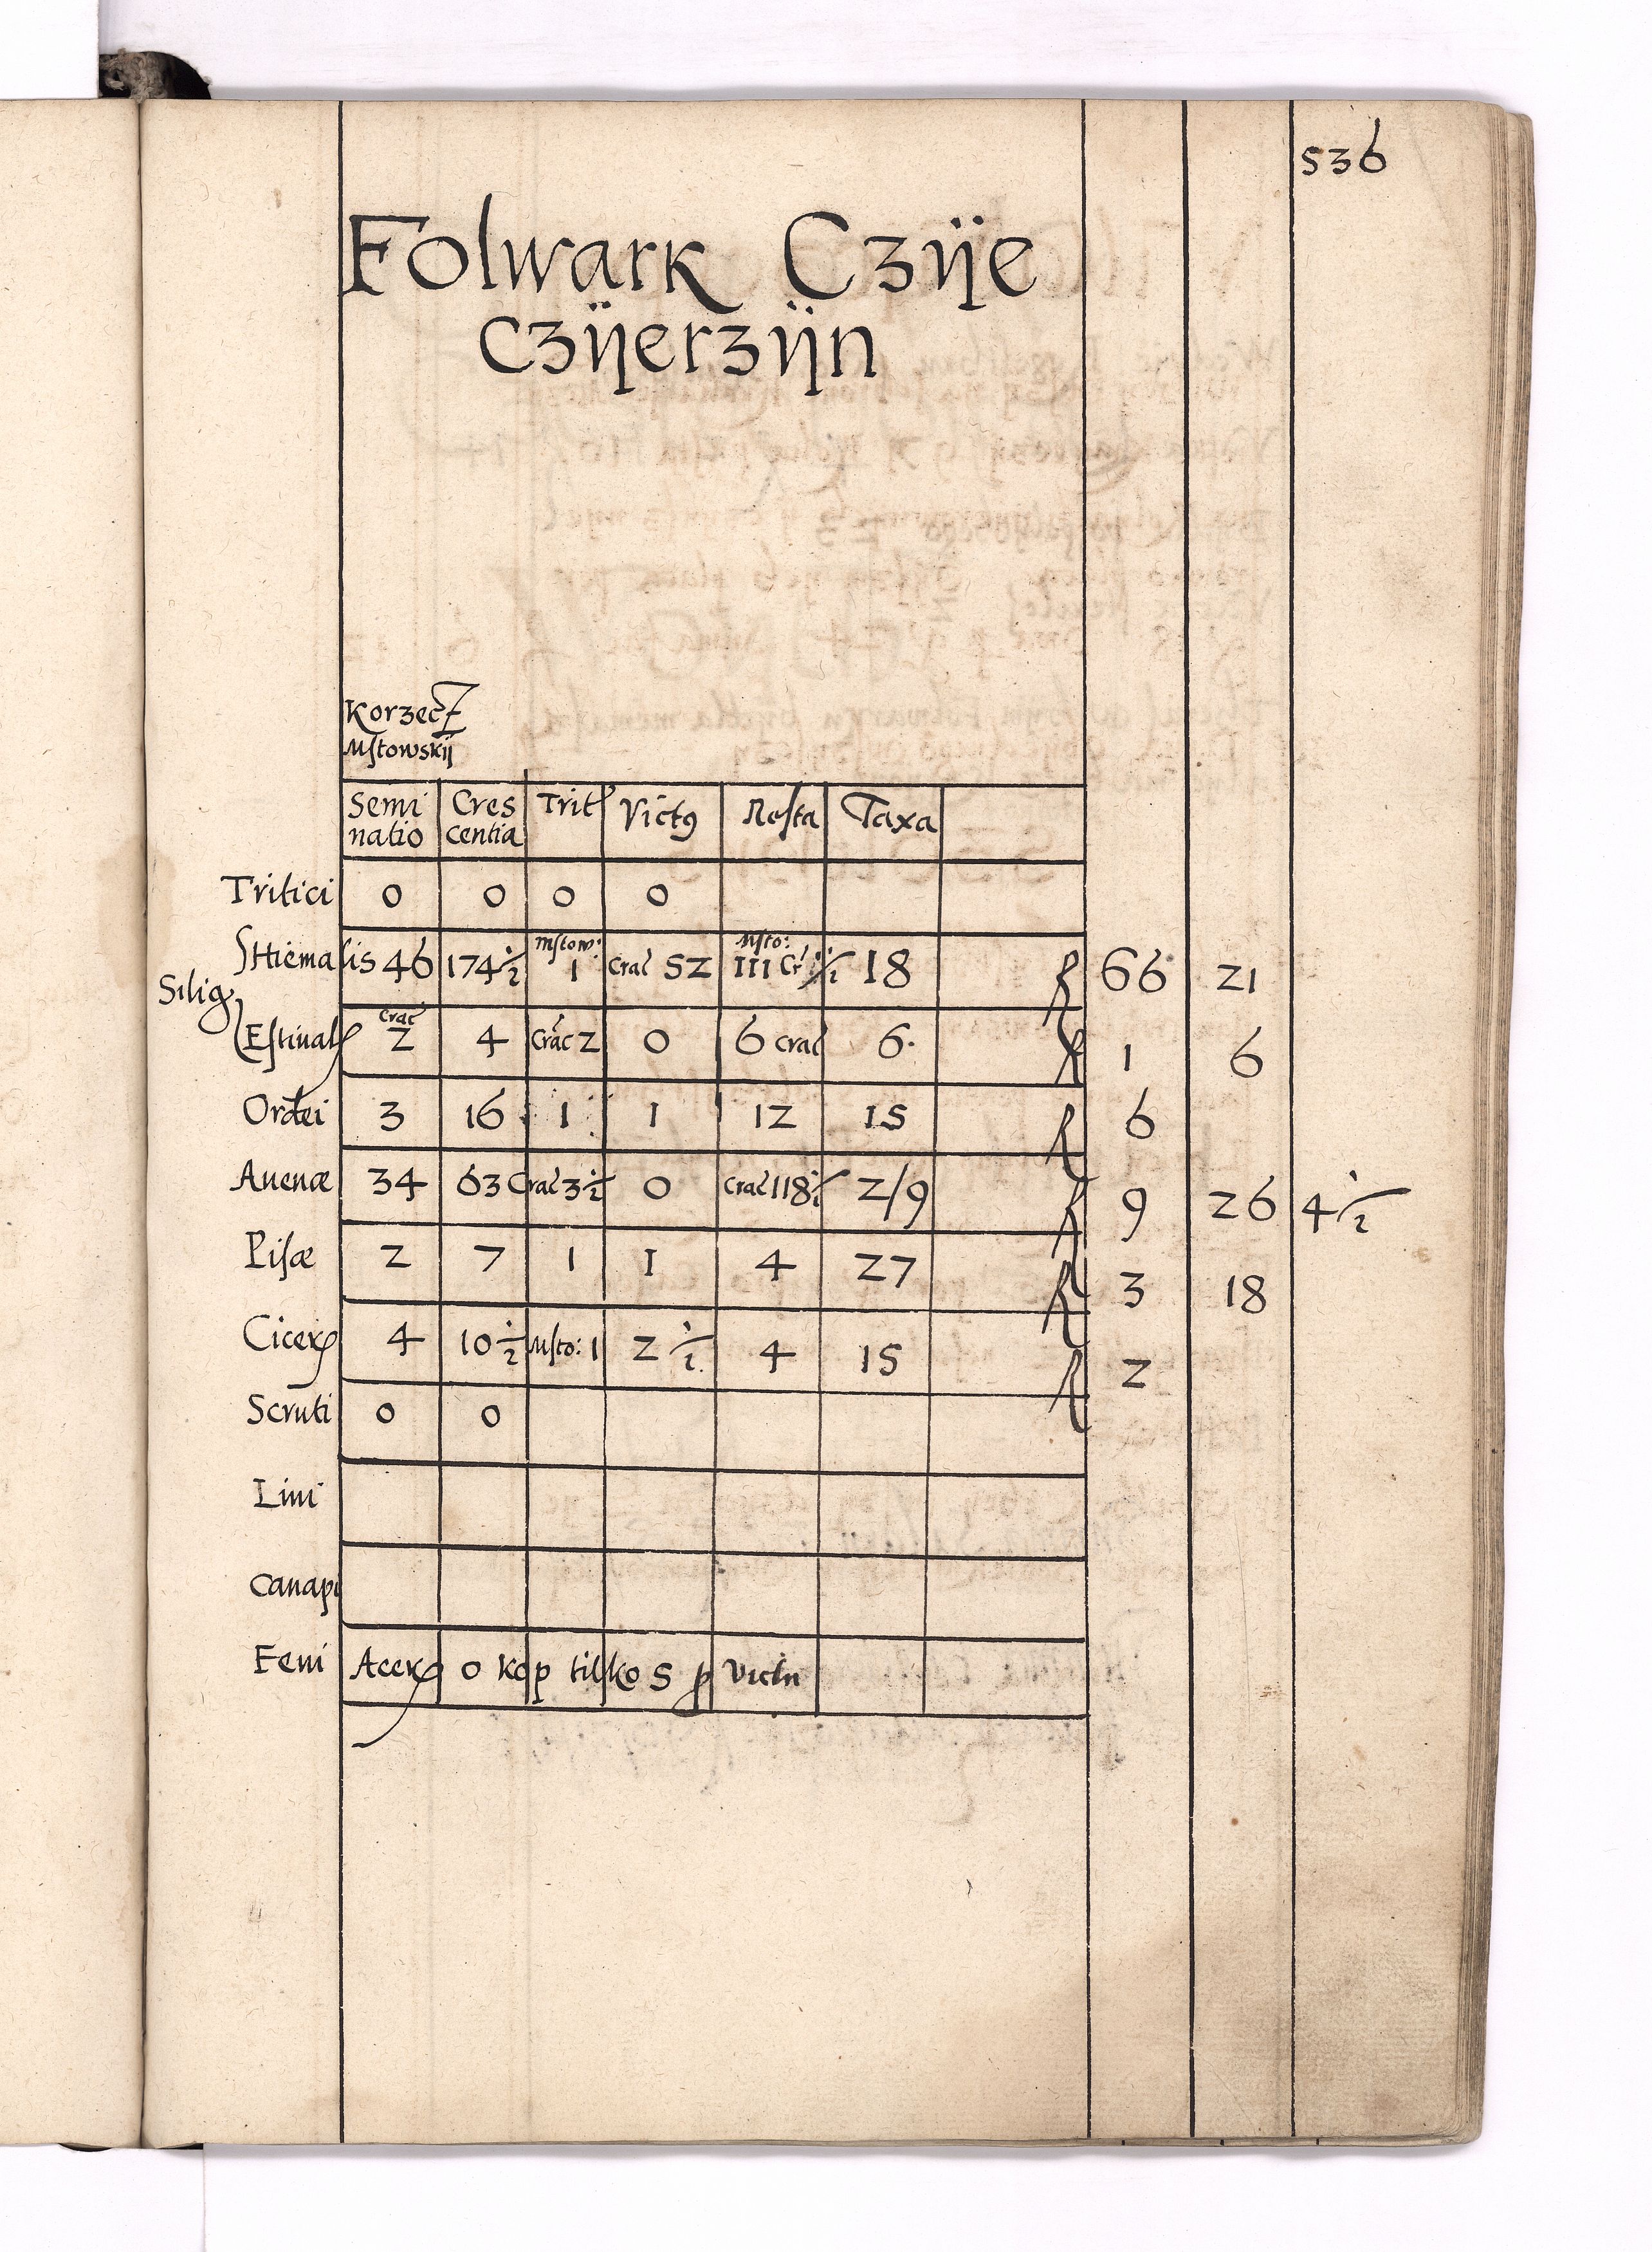 536
Folwark Czÿe
czÿerzÿn
Korzecz
Mstowskÿ
Semi natio | Cres centia | Trit | Victꝯ | Resta | Taxa
Tritici 0 0 0 0
Silig Hiemalis 46 174 1/2 Mstow: 1 Crac 52 Msto: 111 Cr 1/2 18 f 66 21
Estinal Crac 2 4 Crac 2 0 6 Crac 6 f 1 6
Ordei 3 16 1 1 12 15 f 6
Auenæ 34 63 Crac 3 1/2 0 Crac 118 1/2 2/9 f 9 26 4 1/2
Pisæ 2 7 1 1 4 27 f 3 18
Cicer 4 10 1/2 Msto: 1 2 1/2 4 15 f 2
Scruti 0 0
Lini
Canapi
Feni Acer 0 kop tilko 5 ꝓ victu